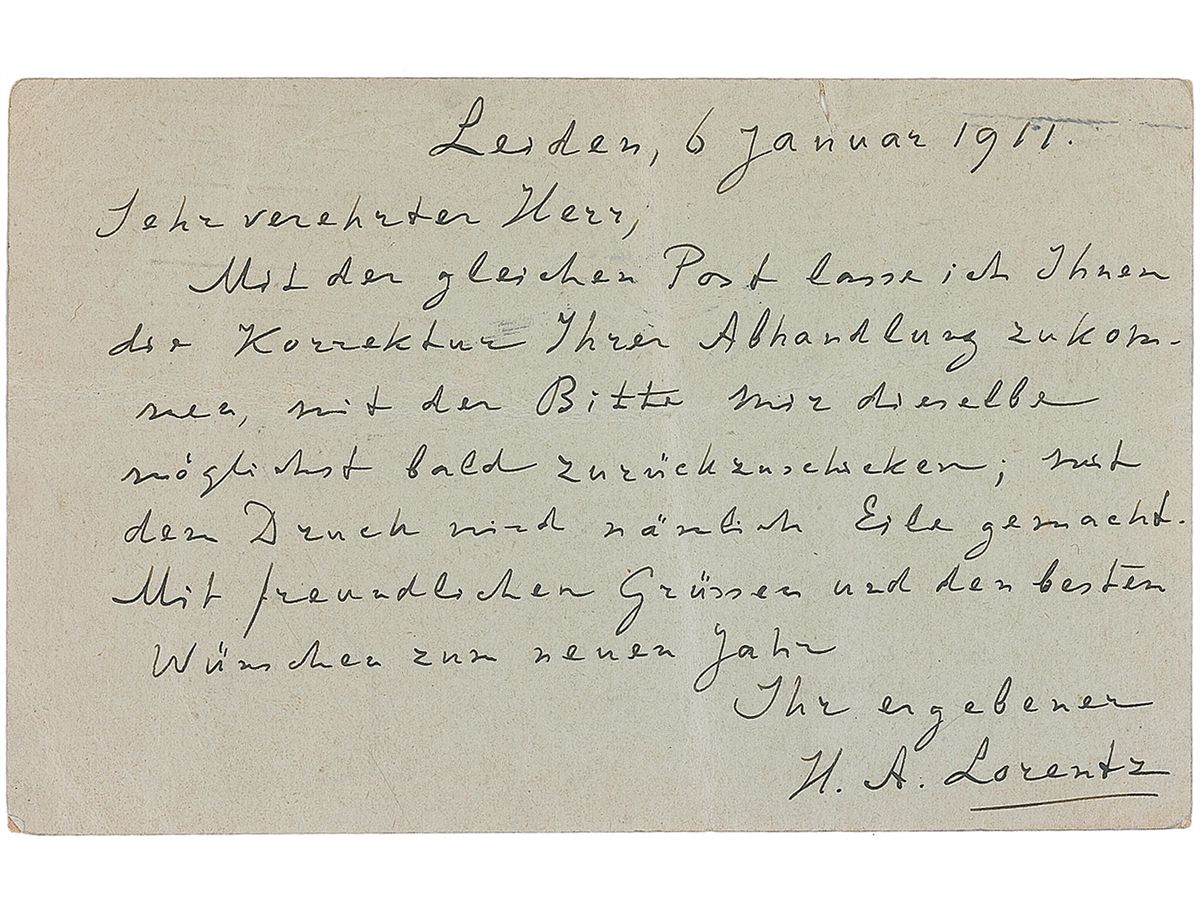 Leiden, 6 Januar 1911.
Sehr verehrter Herr,
Mit der gleichen Post lasse ich Ihnen
die Korrektur Ihrer Abhandlung zukom-
men, mit der Bitte mir dieselbe
möglichst bald zurückzuschicken; mit
dem Druck wird nämlich Eile gemacht.
Mit freundlichen Grüssen und den besten
Wünschen zum neuen Jahr
Ihr ergebener
H. A. Lorentz